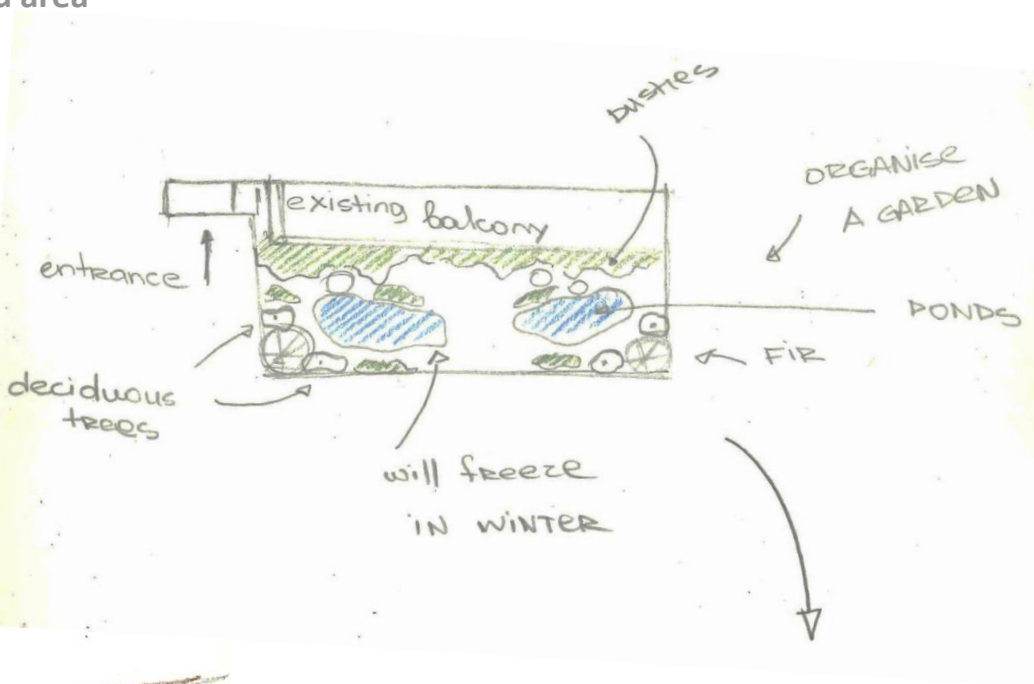 d area
bushes
ORGANISE
A GARDEN
existing balcony
entrance
PONDS
FIR
deciduous
trees
will freeze
IN WINTER